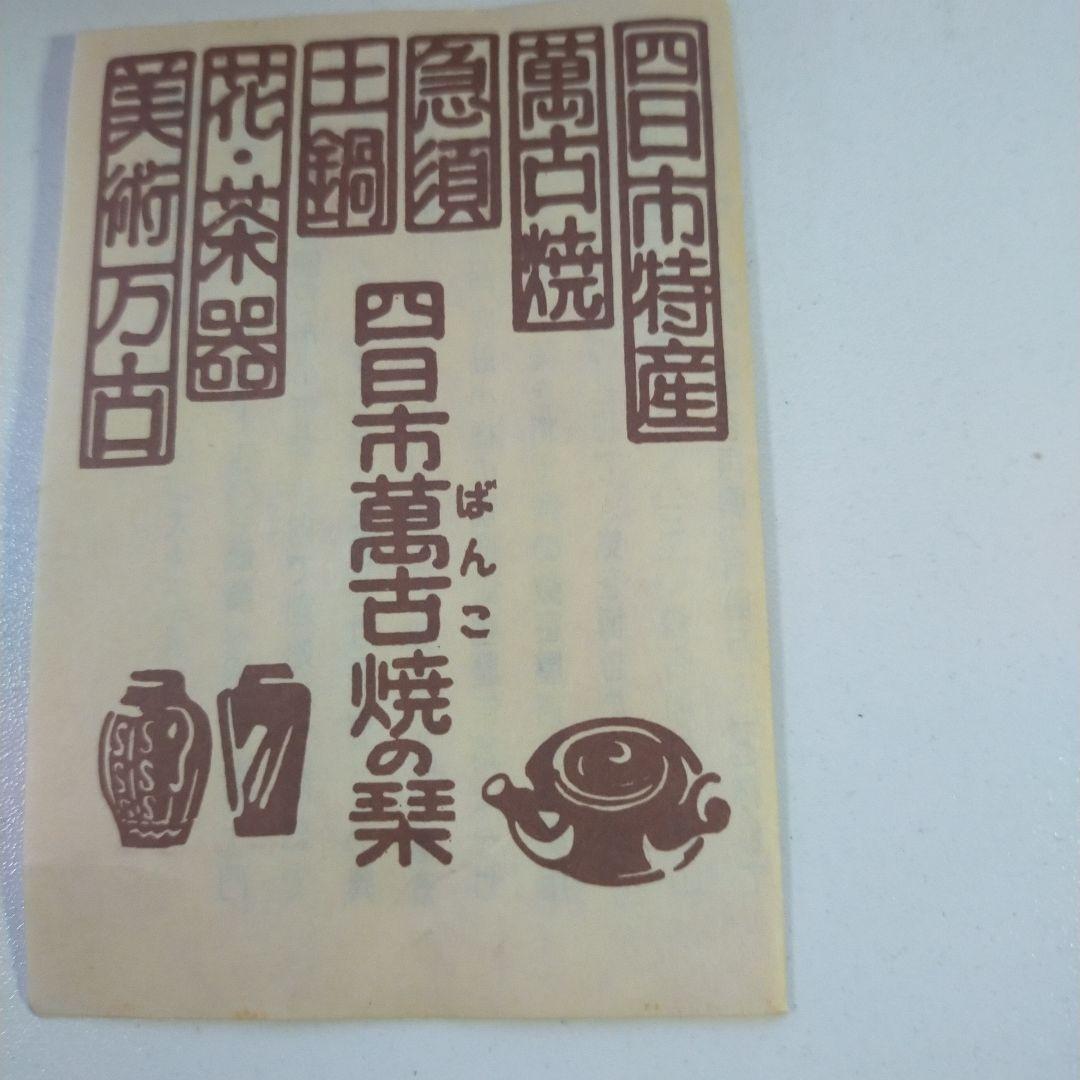 四日市特産
萬古焼
急須
土鍋
花・茶器
美術万古
四日市萬古焼の栞
ばんこ